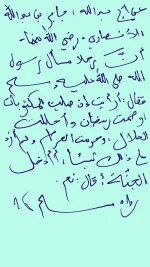 عن أبي عبد الله جابر بن عبد الله
الأنصاري رضي الله عنهما
أن رجلا سأل رسول
الله صلى الله عليه وسلم
فقال: أرأيت إذا صليت المكتوبات
وصمت رمضان وأحللت
الحلال، وحرمت الحرام ولم أزد
على ذلك شيئا، أأدخل
الجنة؟ قال: نعم
رواه مسلم